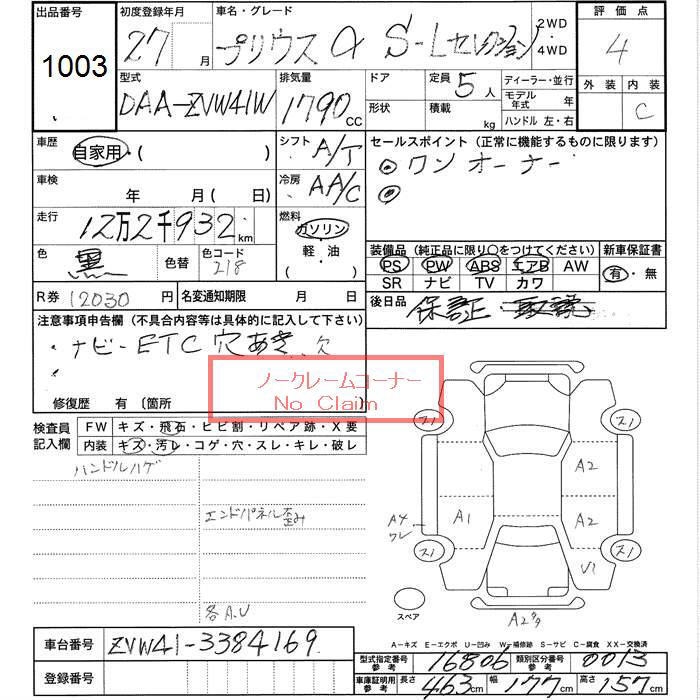 出品番号 初度登録年月 車名・グレード 評価点
1003 27月 プリウスα S-Lセレクション 2WD 4WD 4
型式 排気量 ドア 定員 5人 ディーラー・並行 外装 内装
DAA-ZVW41W 1790CC 形状 積載 kg モデル年式 年 C
ハンドル 左・右
車歴 自家用・( ) シフト A/T セールスポイント (正常に機能するものに限ります)
◎ワンオーナー
車検 年 月(日) 冷房 AA/C ◎
走行 12万2千932km 燃料 ガソリン・軽・油
色 黒 色替 色コード 218
装備品 (純正品に限り〇をつけてください) 新車保証書
PS PW ABS エアB AW 有・無
SR ナビ TV カワ
R券 12030円 名変通知期限 月 日 後日品 保証・取説
注意事項申告欄 (不具合内容等は具体的に記入して下さい)
・ナビ-ETC穴あき 欠
ノークレームコーナー
No Claim
修復歴 有 〔箇所
検査員記入欄 FW キズ・飛石・ヒビ割・リペア跡・X要
内装 キズ・汚レ・コゲ・穴・スレ・キレ・破レ
ハンドルハゲ
エンドパネル歪み
各A.U
ス1 ス1
A2
A4 ワレ A1 A2
ス1 ス1
U1
スペア
A2
A-キズ E-エクボ U-凹み W-補修跡 S-サビ C-腐食 XX-交換済
車台番号 ZVW41-3384169
型式指定番号 参考 16806 類別区分番号 参考 0013
登録番号
車庫証明用 参考 長さ 463cm 幅 177cm 高さ 157cm